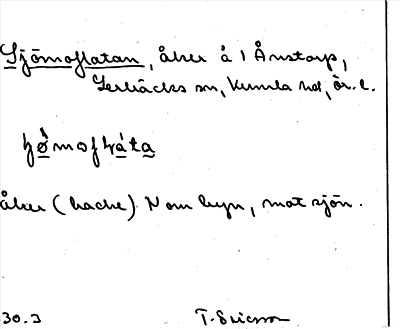 Sjömoflatan, åker å 1 Ånstorp,
Lerbäcks sn, Kumla hd, Ör. l.
åker (backe) N om byn, mot sjön.
30. T. Ericson